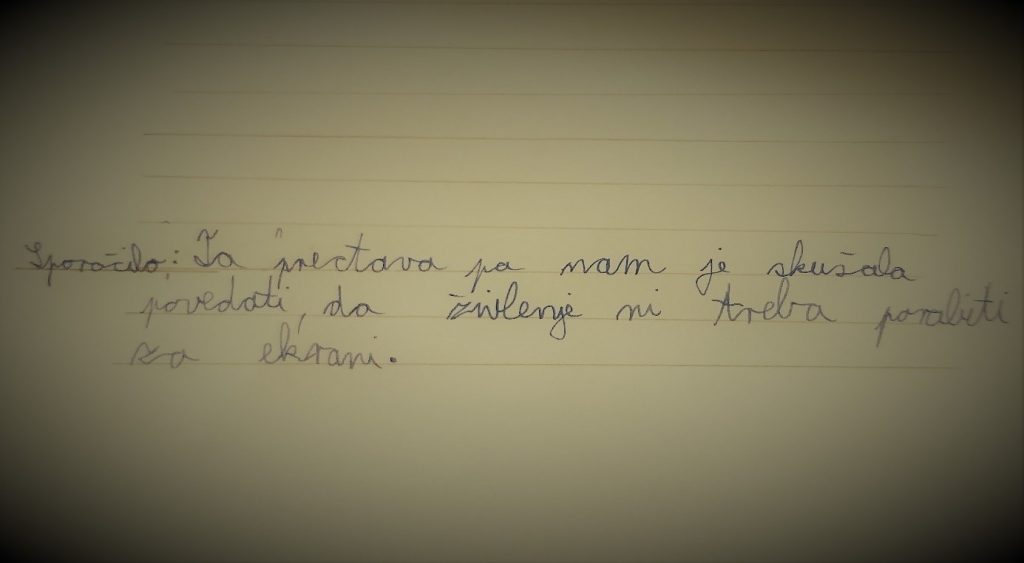 Sporočilo: Ta prectava pa nam je skušala
povedati, da živlenje ni treba porabiti
za ekrani.